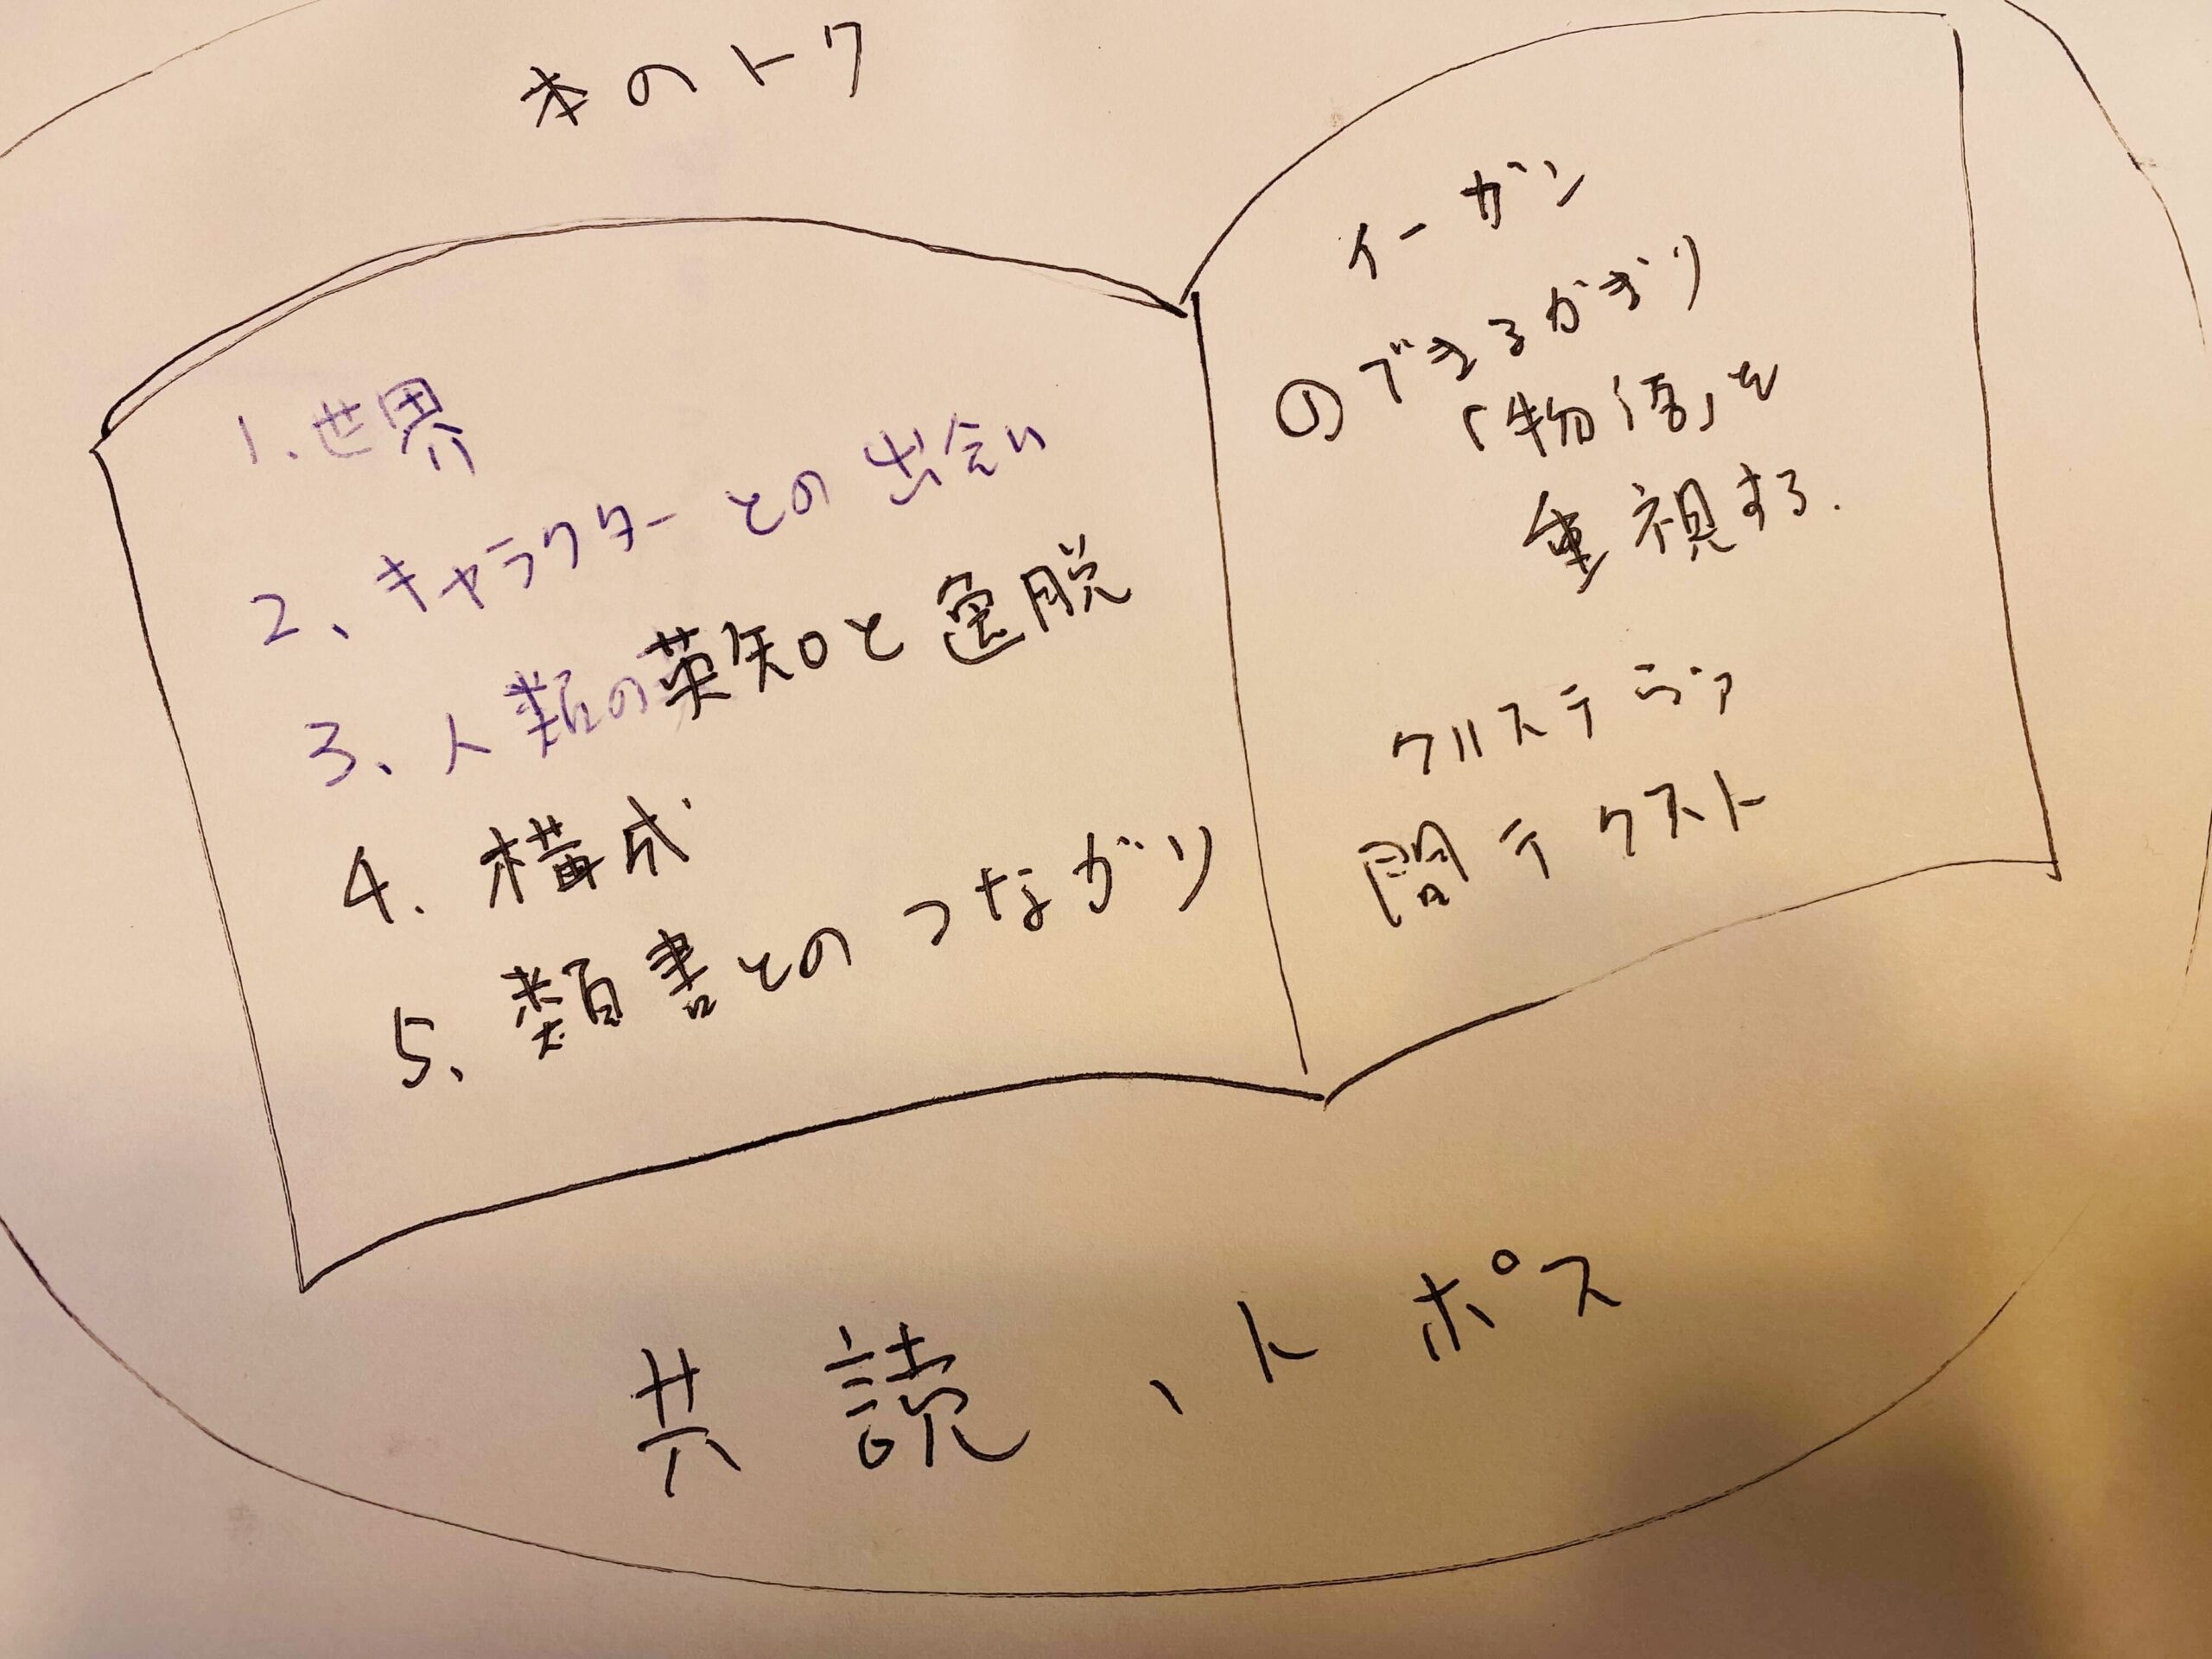 本のトク
1.世界
2、キャラクターとの出会い
3、人類の英知と逸脱
4.構成
5、類書とのつながり
イーガン
のできるかぎり
「物語」を
重視する.
クリステヴァ
間テクスト
共読、トポス